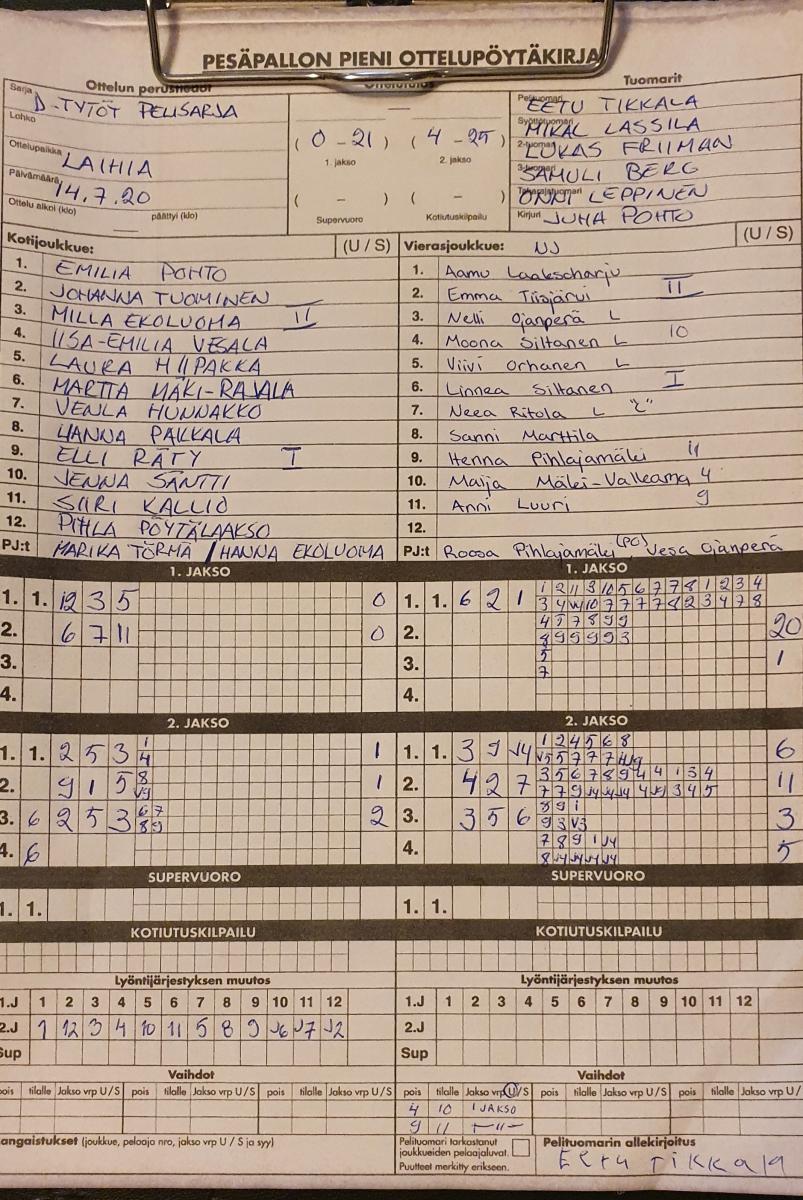 PESÄPALLON PIENI OTTELUPÖYTÄKIRJA
Ottelun perustiedot
Ottelutulos
Tuomarit
Sarja D-TYTÖT PELISARJA
Lohko
Ottelupaikka LAIHIA
Päivämäärä 14.7.20
Ottelu alkoi (klo) päättyi (klo)
( 0 - 21 ) ( 4 - 25 )
1. jakso 2. jakso
( - ) ( - )
Supervuoro Kotiutuskilpailu
Pelituomari EETU TIKKALA
Syöttötuomari MIKAL LASSILA
2-tuomari LUKAS FRIIMAN
3-tuomari SAMULI BERG
Takarajatuomari ONNI LEPPINEN
Kirjuri JUHA POHTO
Kotijoukkue: (U / S)
1. EMILIA POHTO
2. JOHANNA TUOMINEN
3. MILLA EKOLUOMA II
4. IISA-EMILIA VESALA
5. LAURA HIIPAKKA
6. MARTTA MÄKI-RAJALA
7. VENLA HUNNAKKO
8. HANNA PAKKALA
9. ELLI RÄTY I
10. JENNA SÄNTTI
11. SIIRI KALLIO
12. PIHLA PÖYTÄLAAKSO
PJ:t MARIKA TÖRMÄ / HANNA EKOLUOMA
Vierasjoukkue: NJ (U / S)
1. Aamu Laakscharju
2. Emma Tiisjärvi II
3. Nelli Ojanperä L
4. Moona Siltanen L 10
5. Viivi Orhanen L
6. Linnea Siltanen I
7. Neea Ritola L "L"
8. Sanni Marttila
9. Henna Pihlajamäki 11
10. Maija Mäki-Valkama 4
11. Anni Luuri 9
12.
PJ:t Roosa Pihlajamäki (PC), Vesa Ojanperä
1. JAKSO
1. 1. 12 3 5 0
2. 6 7 11 0
3.
4.
2. JAKSO
1. 1. 2 5 3 1 4 1
2. 9 1 5 8 1
3. 6 2 5 3 6 7 8 9 2
4. 6
SUPERVUORO
1. 1.
KOTIUTUSKILPAILU
1. JAKSO
1. 1. 6 2 1 1 2 11 3 10 5 6 7 7 8 1 2 3 4
2. 4 5 7 8 9 9 20
8 9 9 9 9 3
3. 5 1
7
4.
2. JAKSO
1. 1. 3 9 J4 1 2 4 5 6 8 6
2. 4 2 7 3 5 6 7 8 9 4 4 1 3 4 11
3. 3 5 6 8 9 1 3
4. 7 8 9 1 J4 5
8 J4 J4 J4 J4
SUPERVUORO
1. 1.
KOTIUTUSKILPAILU
Lyöntijärjestyksen muutos
1.J 1 2 3 4 5 6 7 8 9 10 11 12
2.J 1 12 3 4 10 11 5 8 9 J6 J7 J2
Sup
Lyöntijärjestyksen muutos
1.J 1 2 3 4 5 6 7 8 9 10 11 12
2.J
Sup
Vaihdot
pois tilalle Jakso vrp U/S pois tilalle Jakso vrp U/S pois tilalle Jakso vrp U/S
Vaihdot
pois tilalle Jakso vrp U/S pois tilalle Jakso vrp U/S pois tilalle Jakso vrp U/
4 10 1 JAKSO
9 11 -"-
angaistukset (joukkue, pelaaja nro, jakso vrp U / S ja syy)
Pelituomari tarkastanut
joukkueiden pelaajaluvat.
Puutteet merkitty erikseen.
Pelituomarin allekirjoitus
Eetu Tikkala